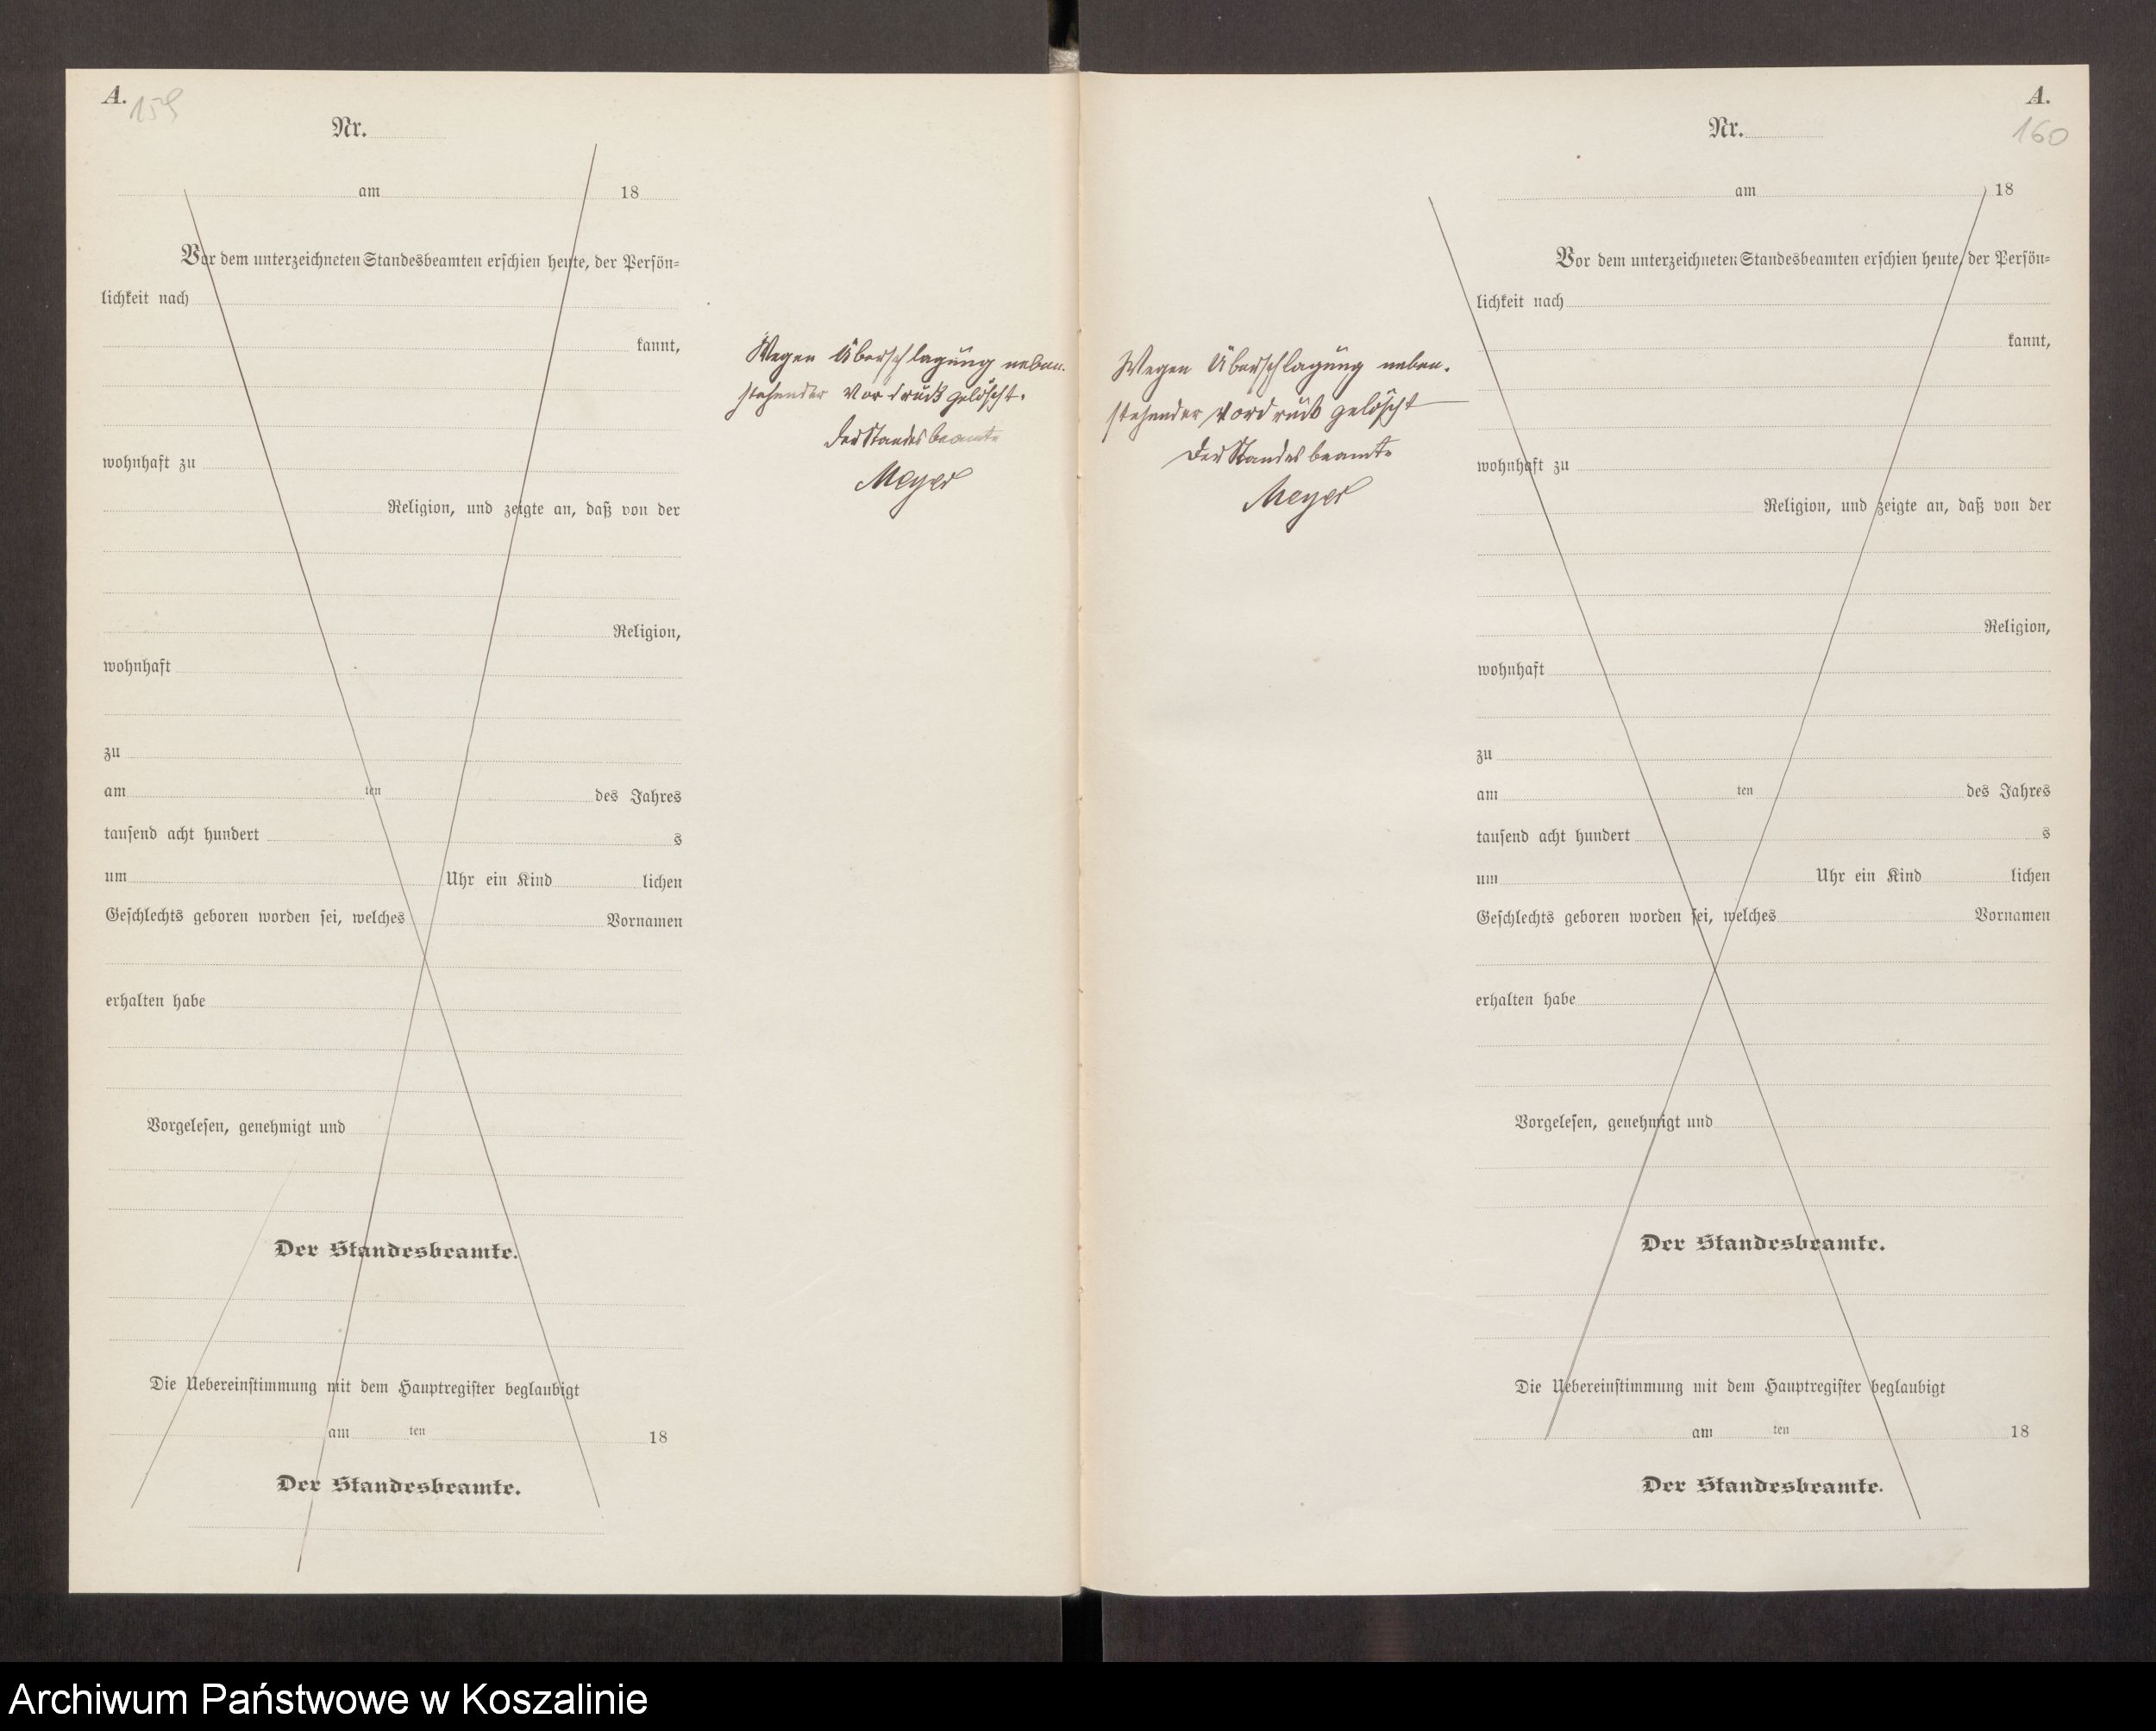 A.
159
Nr.
am 18
Vor dem unterzeichneten Standesbeamten erschien heute, der Persön=
lichkeit nach
kannt,
wohnhaft zu
Religion, und zeigte an, daß von der
Religion,
wohnhaft
zu
am ten des Jahres
tausend acht hundert s
um Uhr ein Kind lichen
Geschlechts geboren worden sei, welches Vornamen
erhalten habe
Vorgelesen, genehmigt und
Der Standesbeamte.
Die Uebereinstimmung mit dem Hauptregister beglaubigt
am ten 18
Der Standesbeamte.
Wegen Überschlagung neben.
stehender Vordruck gelöscht.
Der Standesbeamte
Meyer
A.
160
Nr.
am 18
Vor dem unterzeichneten Standesbeamten erschien heute, der Persön=
lichkeit nach
kannt,
wohnhaft zu
Religion, und zeigte an, daß von der
Religion,
wohnhaft
zu
am ten des Jahres
tausend acht hundert s
um Uhr ein Kind lichen
Geschlechts geboren worden sei, welches Vornamen
erhalten habe
Vorgelesen, genehmigt und
Der Standesbeamte.
Die Uebereinstimmung mit dem Hauptregister beglaubigt
am ten 18
Der Standesbeamte.
Wegen Überschlagung neben.
stehender Vordruck gelöscht
Der Standesbeamte
Meyer
Archiwum Państwowe w Koszalinie